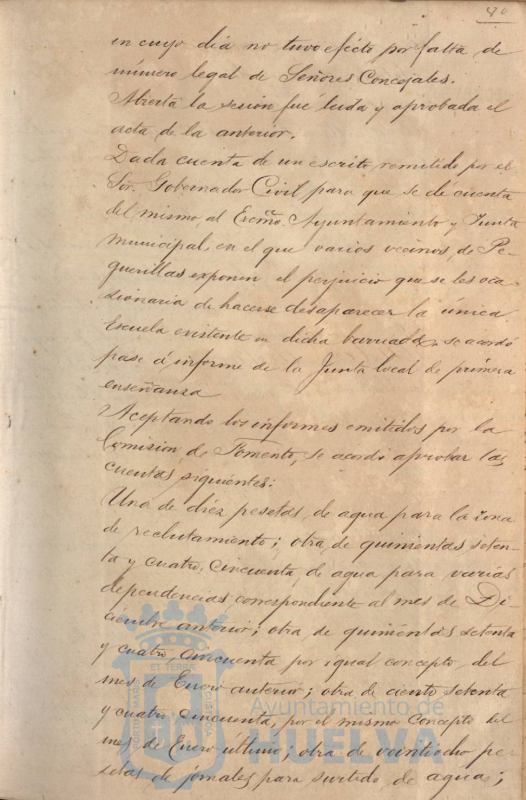 80
en cuyo dia no tuvo efecto por falta de
número legal de Señores Concejales.
Abierta la sesión fué leida y aprobada el
acta de la anterior.
Dada cuenta de un escrito remitido por el
Sor. Gobernador Civil para que se dé cuenta
del mismo al Excmo. Ayuntamiento y Junta
municipal, en el que varios vecinos de Pe-
guerillas exponen el perjuicio que se les oca-
sionaria de hacerse desaparecer la única
Escuela existente en dicha barriada, se acordó
pase á informe de la Junta local de primera
enseñanza
Aceptando los informes emitidos por la
Comision de Fomento, se acordó aprobar las
cuentas siguientes:
Una de diez pesetas, de agua para la zona
de reclutamiento; otra de quinientas seten-
ta y cuatro, cincuenta, de agua para varias
dependencias, correspondiente al mes de Di-
ciembre anterior; otra de quinientas setenta
y cuatro, cincuenta por igual concepto del
mes de Enero anterior; otra de ciento setenta
y cuatro, cincuenta, por el mismo concepto del
mes de Enero último; otra de veintiocho pe-
setas de jornales para surtido de aguas;
ET TERRÆ
Ayuntamiento de
HUELVA